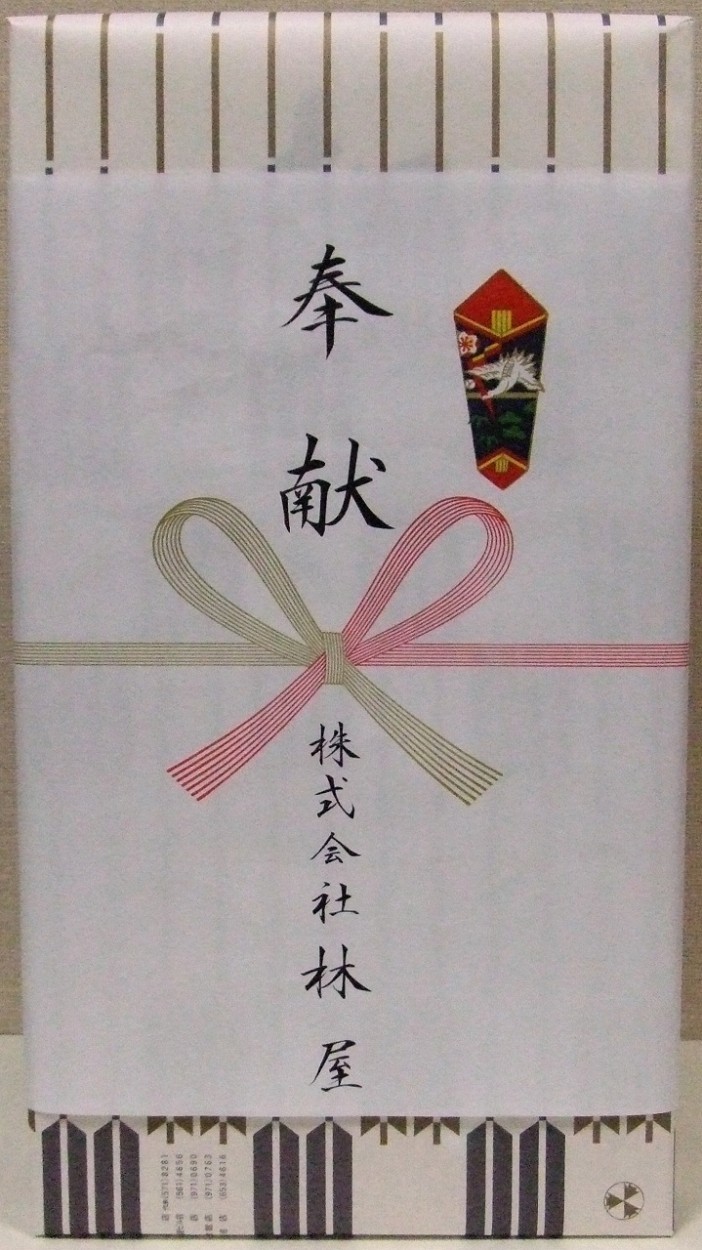 奉献
株式会社林屋